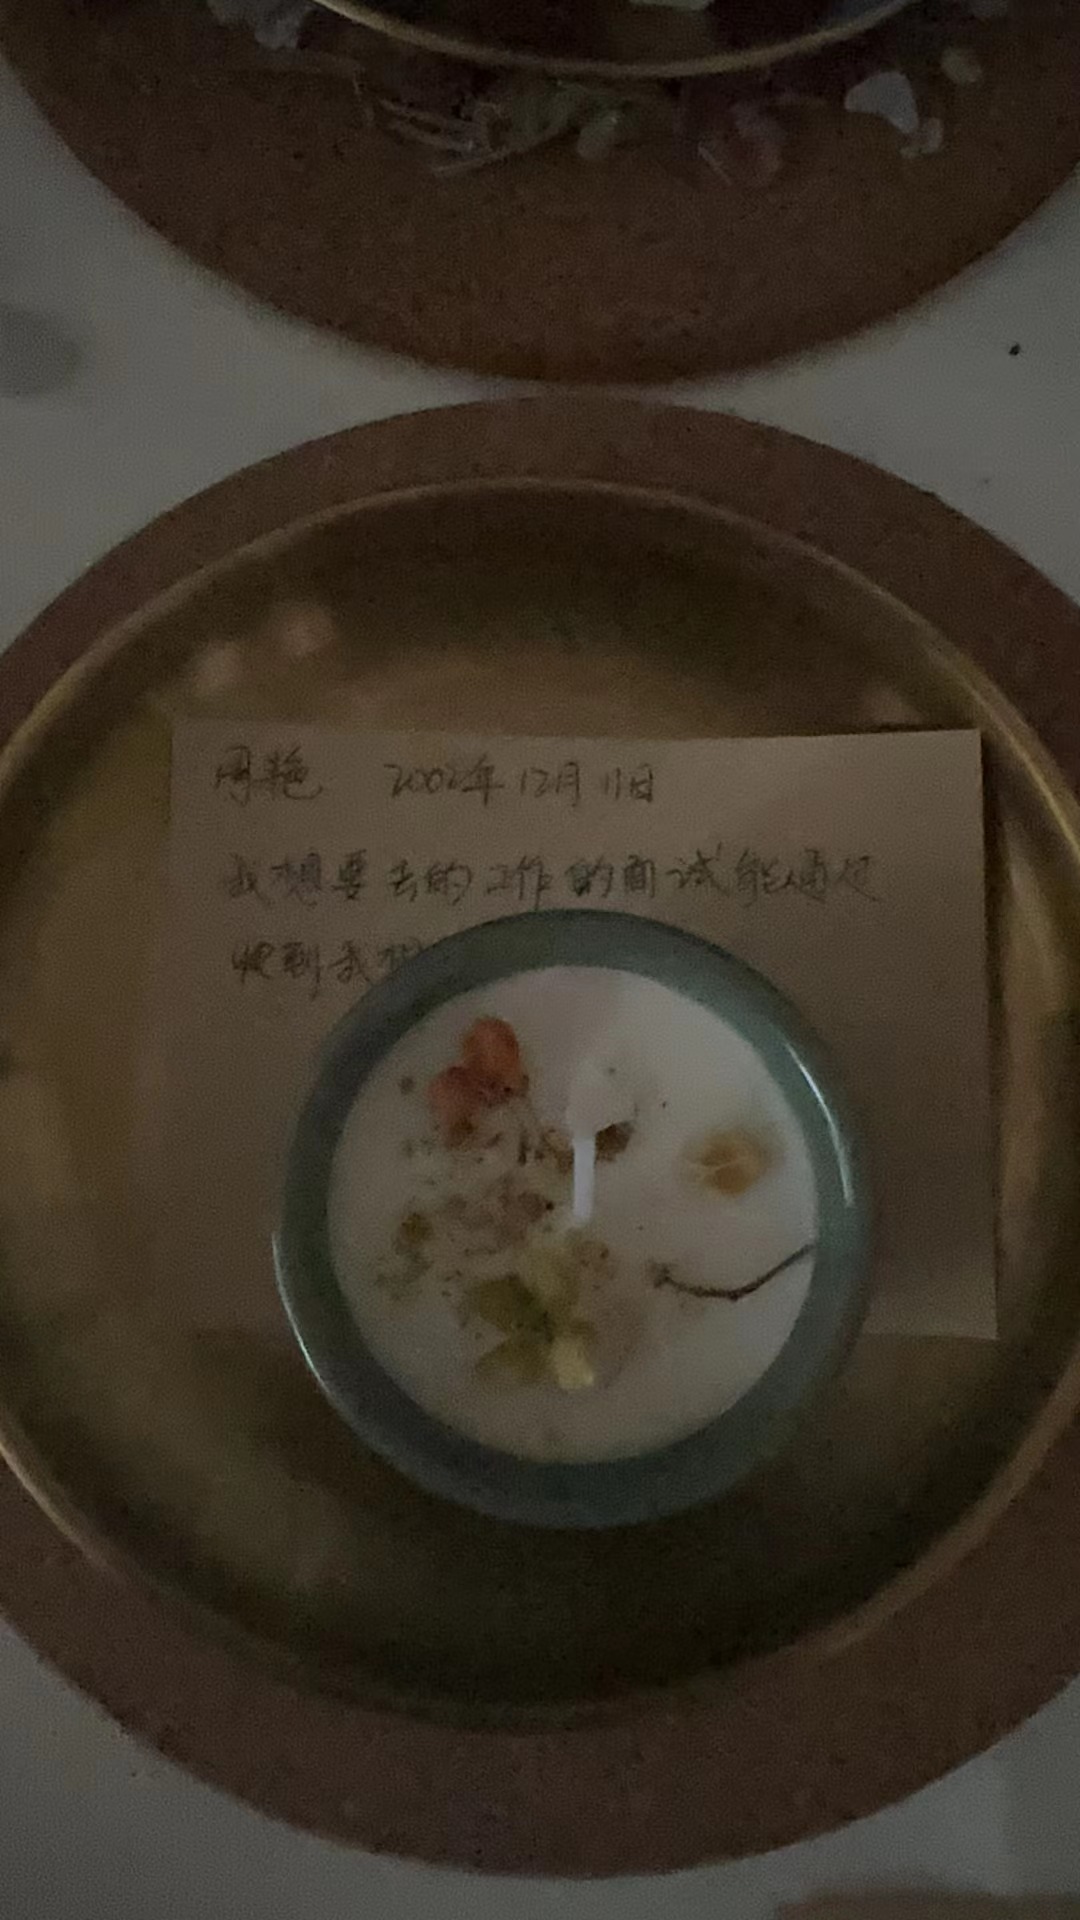 周艳 2002年12月11日
我想要去的工作的面试能通过
收到我想